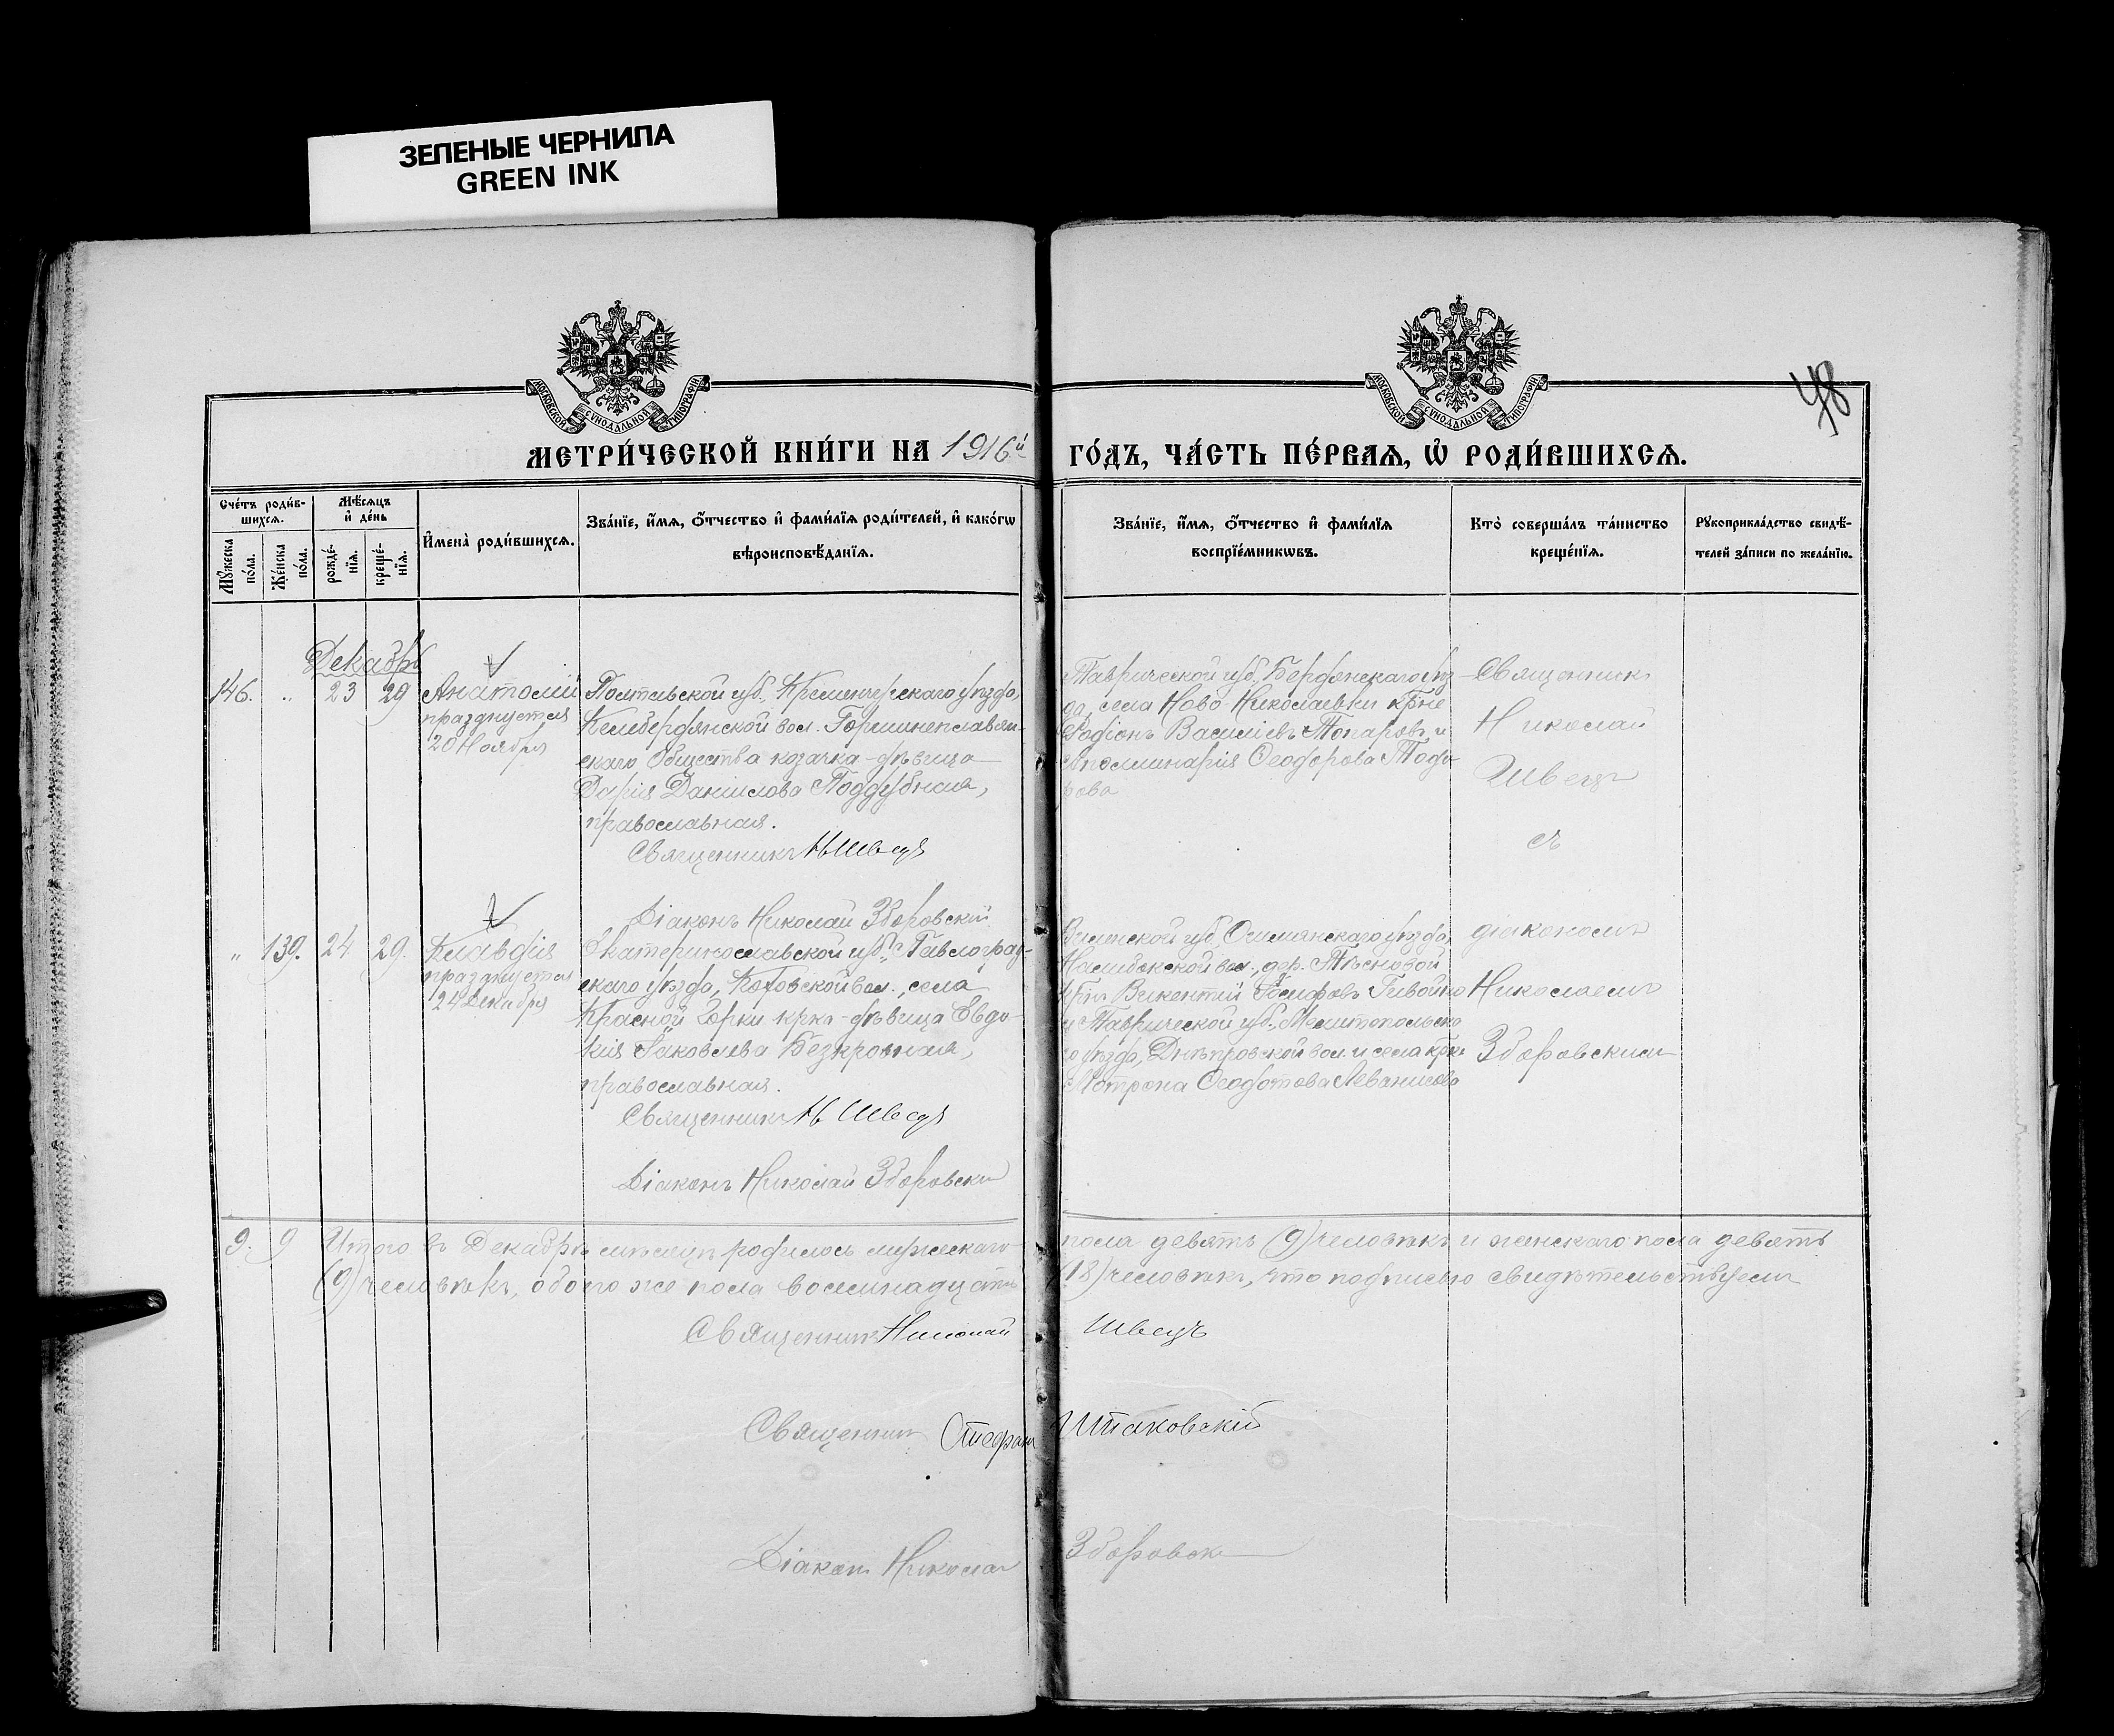 ЗЕЛЕНЫЕ ЧЕРНИЛА
GREEN INK
МОСКОВСКОЙ СѴНОДАЛЬНОЙ ТИПОГРАФІИ
МОСКОВСКОЙ СѴНОДАЛЬНОЙ ТИПОГРАФІИ
48
МЕТРИ́ЧЕСКОЙ КНИ́ГИ НА 1916й ГО́ДЪ, ЧА́СТЬ ПЕ́РВАѦ, Ѽ РОДИ́ВШИХСѦ.
Сче́тъ роди́в-
шихсѧ.
Мꙋ́жеска по́ла.
Же́нска по́ла.
Мѣ́сѧцъ и҆ де́нь
рожде́-
нїѧ.
креще́-
нїѧ.
И҆мена̀ роди́вшихсѧ.
Зва́нїе, и҆́мѧ, ѻ҆́тчество и҆ фами́лїѧ роди́телей, и҆ како́гѡ
вѣроисповѣ́данїѧ.
Зва́нїе, и҆́мѧ, ѻ҆́тчество и҆ фами́лїѧ
воспрїе́мникѡвъ.
Кто̀ соверша́лъ та́инство
креще́нїѧ.
Рꙋкоприкла́дство свидѣ́-
телей за́писи по жела́нїю.
Декабрь
146. „ 23 29
Анатолій
празднуется
20 Ноября
Полтавской губ., Кременчугскаго уѣзда,
скаго Общества козачка-дѣвица
Дарія Даніилова Поддубная,
православная.
Священникъ Н Швецъ
Діаконъ Николай Зборовскій
Таврической губ., Бердянскаго уѣз-
да, села Ново-Николаевки крне
Родіонъ Васильевъ Топаровъ и
Аполлинарія Ѳеодорова Тодо-
рова
Священникъ
Николай
Швецъ
съ
„ 139. 24 29.
Клавдія
празднуется
24 Декабря
Екатеринославской губ., Павлоград-
скаго уѣзда, вол., села
Красной Горки крка-дѣвица Евдо-
кія Іаковлева Безкровная,
православная.
Священникъ Н Швецъ
Діаконъ Николай Зборовски
Виленской губ, Ошмянскаго уѣзда,
Налибокской вол., дер.
Викентій Іосифовъ
и Таврической губ., Мелитопольска
го уѣзда, Днѣпровской вол. и села крка
Мотрона
діакономъ
Николаемъ
Зборовскимъ
9. 9 Итого въ Декабрѣ мѣсяцѣ родилось мужескаго пола девять (9) человѣкъ и женскаго пола девять
(9) человѣкъ, обоего же пола восемнадцать (18) человѣкъ, что подписью свидѣтельствуемъ
Священникъ Николай Швецъ
Священник Стефанъ Шпаковскій
Діакон Николай Зборовск